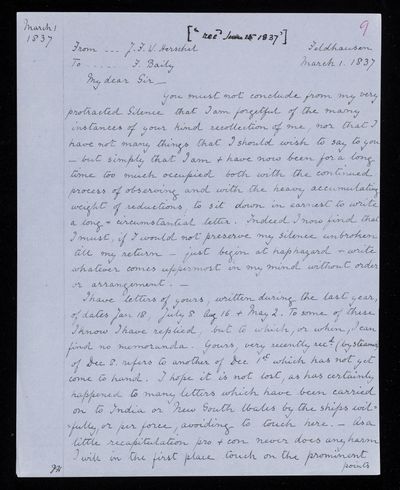 March 1
1837
["recd June 15 1837"]
9
From --- J. F. V. Herschel
Feldhausen
To ------ F. Baily
March 1. 1837
My dear Sir —
You must not conclude from my very
protracted Silence that I am forgetful of the many
instances of your kind recollection of me, nor that I
have not many things that I should wish to say to you
— but simply that I am & have now been for a long
time too much occupied both with the continued
process of observing and with the heavy accumulating
weight of reductions, to sit down in earnest to write
a long & circumstantial letter. Indeed I now find that
I must, if I would not preserve my silence unbroken
till my return — just begin at haphazard & write
whatever comes uppermost in my mind without order
or arrangement. —
I have letters of yours, written during the last year,
of dates Jan 18, July 8 Aug 16. & May 2. To some of these
I know I have replied, but to which, or when, I can
find no memoranda. Yours, very recently recd. (by steamer)
of Dec 8. refers to another of Dec 1st which has not yet
come to hand. I hope it is not lost, as has certainly
happened to many letters which have been carried
on to India or New South Wales by the ships wil-
-fully, or per force, avoiding to touch here. — As a
little recapitulation pro & con never does any harm
I will in the first place touch on the prominent
points